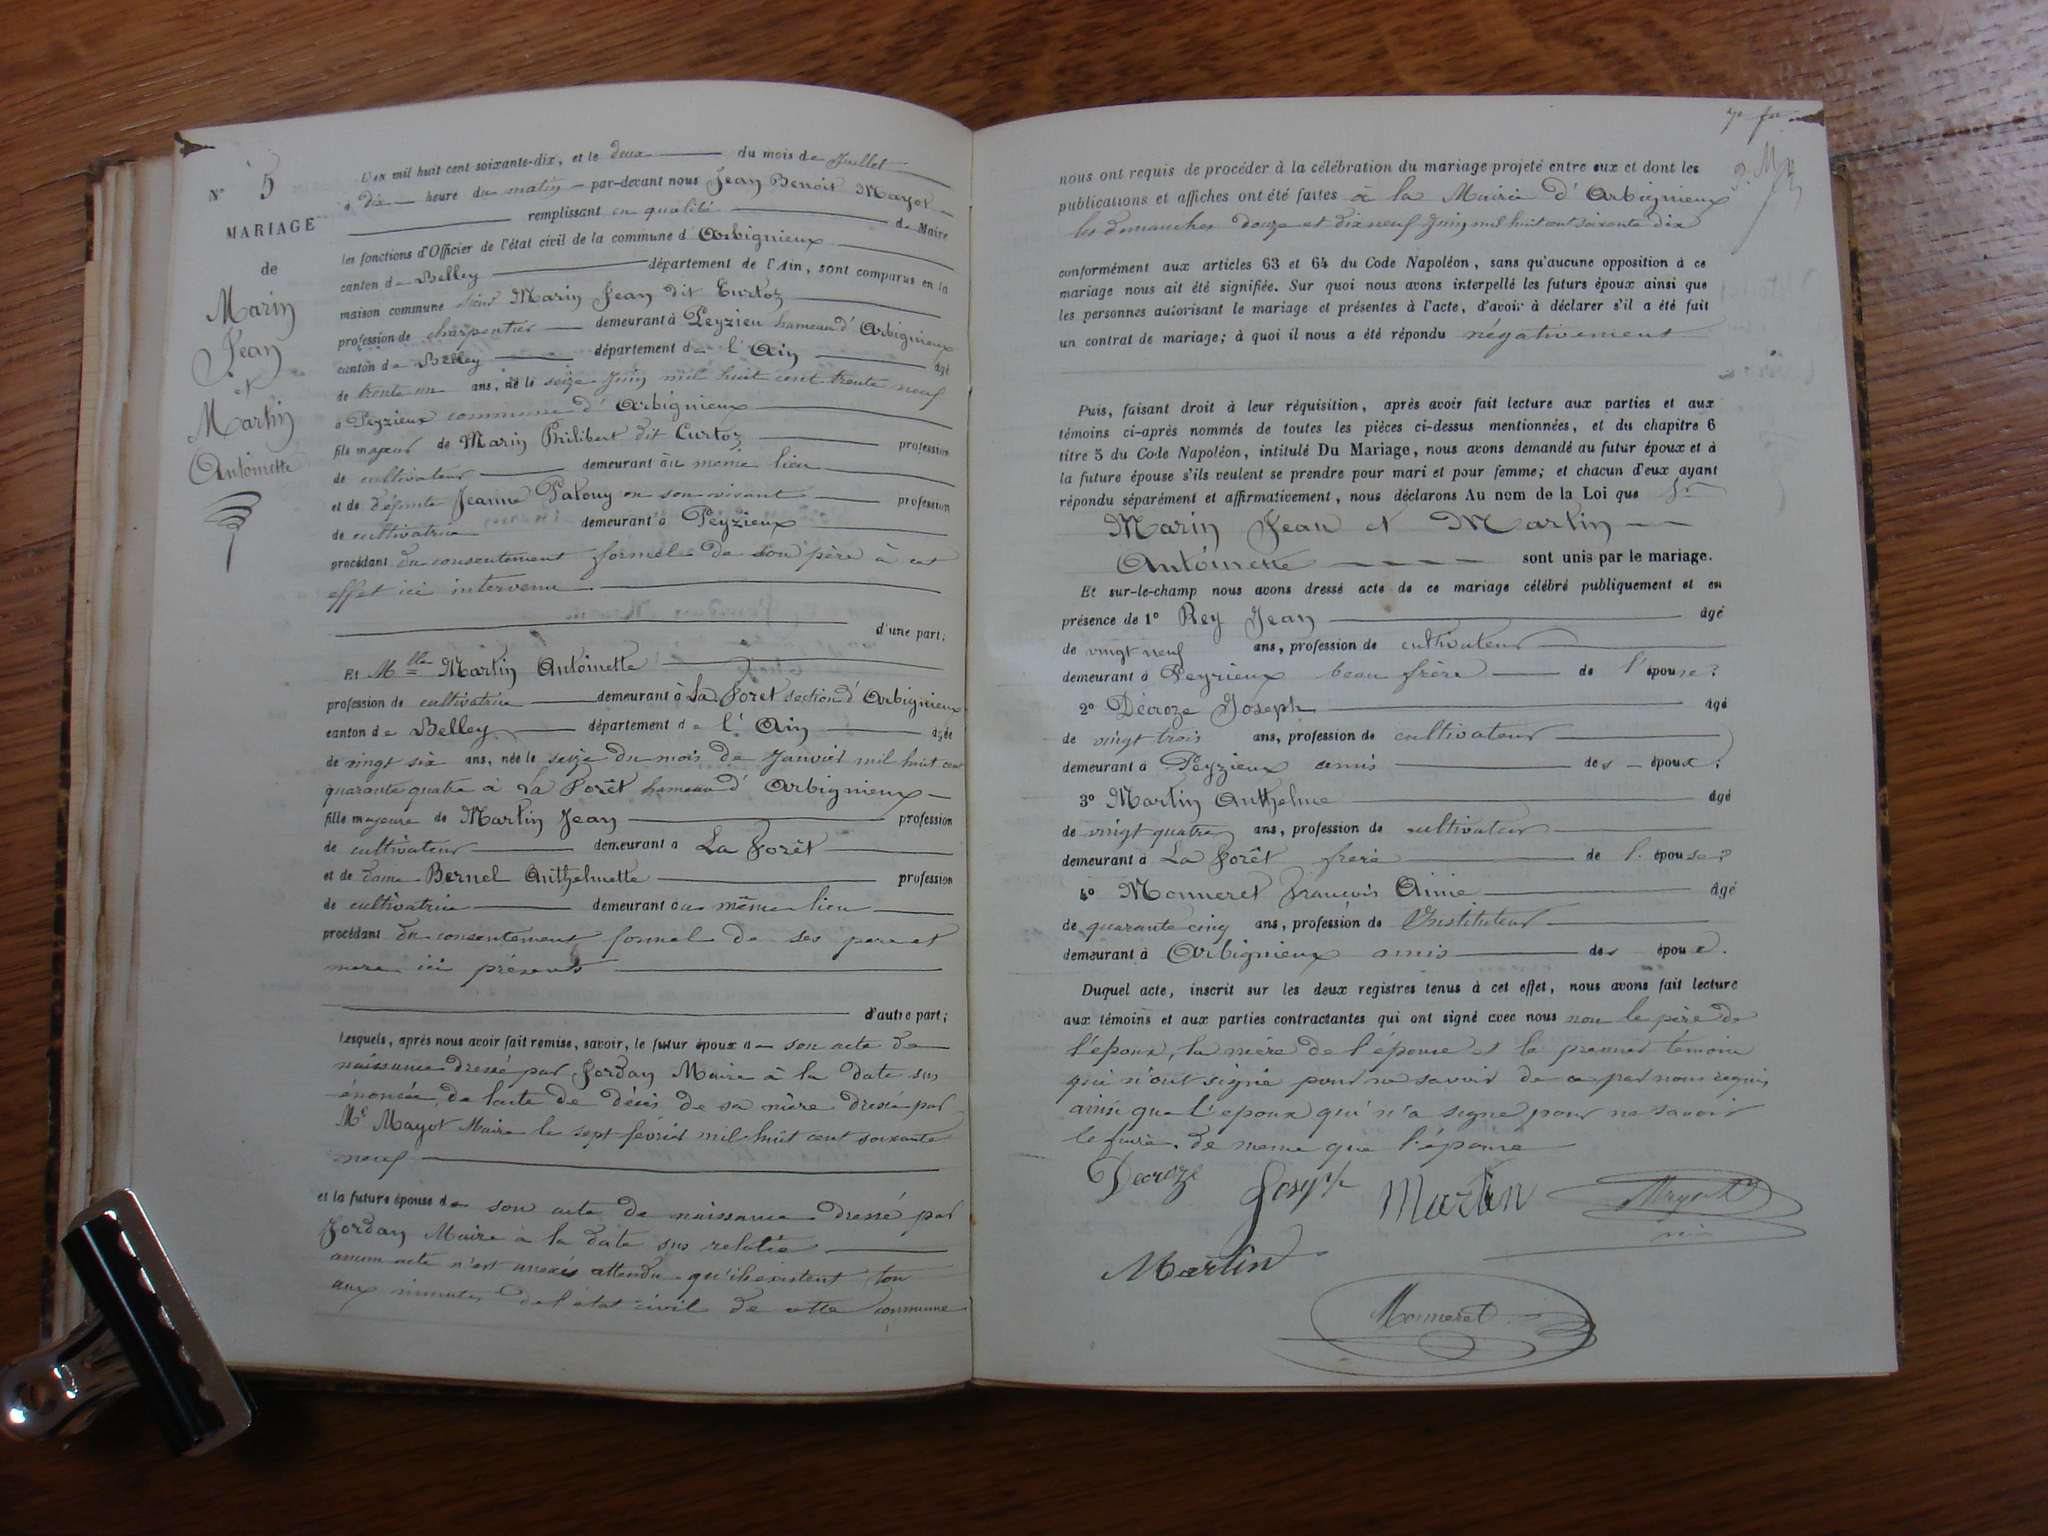 N° 5
MARIAGE
de
Marin
Jean
et
Martin
Antoinette
L'an mil huit cent soixante-dix, et le deux du mois de Juillet
à dix heure du matin par-devant nous Jean Benoit Mayot
remplissant en qualité de Maire
les fonctions d'Officier de l'état civil de la commune d'Arbignieux
canton de Belley département de l'Ain, sont comparus en la
maison commune sieur Marin Jean dit Curtoz
profession de charpentier demeurant à Peyzieu hameau d'Arbignieux
canton de Belley département de l'Ain âgé
de trente un ans, né le seize Juin mil huit cent trente neuf
à Peyzieux commune d'Arbignieux
fils majeur de Marin Philibert dit Curtoz profession
de cultivateur demeurant au même lieu
et de défunte Jeanne Patouy en son vivant profession
de cultivatrice demeurant à Peyzieux
procédant du consentement formel de son père à cet
effet ici intervenu
d'une part;
Et Mlle Martin Antoinette
profession de cultivatrice demeurant à La Foret section d'Arbignieux
canton de Belley département de l'Ain âgée
de vingt six ans, née le seize du mois de Janvier mil huit cent
quarante quatre à La Forêt hameau d'Arbignieux
fille majeure de Martin Jean profession
de cultivateur demeurant à La Forêt
et de dame Bernel Anthelmette profession
de cultivatrice demeurant au même lieu
procédant du consentement formel de ses pere et
mere ici présents
d'autre part;
Lesquels, après nous avoir fait remise, savoir, le futur époux de son acte de
naissance dressé par Jordan Maire à la date sus
énoncée, de l'acte de décès de sa mère dressé par
Me Mayot Maire le sept février mil huit cent soixante
neuf
et la future épouse de son acte de naissance dressé par
Jordan Maire à la date sus relatée
aucun acte n'est annexé attendu qu'ils existent tou
aux minutes de l'état civil de cette commune
nous ont requis de procéder à la célébration du mariage projeté entre eux et dont les
publications et affiches ont été faites à la Mairie d'Arbignieux
les dimanches douze et dix neuf Juin mil huit cent soixante dix
conformément aux articles 63 et 64 du Code Napoléon, sans qu'aucune opposition à ce
mariage nous ait été signifiée. Sur quoi nous avons interpellé les futurs époux ainsi que
les personnes autorisant le mariage et présentes à l'acte, d'avoir à déclarer s'il a été fait
un contrat de mariage; à quoi il nous a été répondu négativement
Puis, faisant droit à leur réquisition, après avoir fait lecture aux parties et aux
témoins ci-après nommés de toutes les pièces ci-dessus mentionnées, et du chapitre 6
titre 5 du Code Napoléon, intitulé Du Mariage, nous avons demandé au futur époux et à
la future épouse s'ils veulent se prendre pour mari et pour femme; et chacun d'eux ayant
répondu séparément et affirmativement, nous déclarons Au nom de la Loi que Sr
Marin Jean et Martin
Antoinette sont unis par le mariage.
Et sur-le-champ nous avons dressé acte de ce mariage célébré publiquement et en
présence de 1° Rey Jean âgé
de vingt neuf ans, profession de cultivateur
demeurant à Peyzieux beau frère de l'épouse;
2° Décroze Joseph âgé
de vingt trois ans, profession de cultivateur
demeurant à Peyzieux amis des époux;
3° Martin Anthelme âgé
de vingt quatre ans, profession de cultivateur
demeurant à La Forêt frère de l'épouse;
4° Monneret François Aimé âgé
de quarante cinq ans, profession de Instituteur
demeurant à Arbignieux amis des époux.
Duquel acte, inscrit sur les deux registres tenus à cet effet, nous avons fait lecture
aux témoins et aux parties contractantes qui ont signé avec nous non le père de
l'époux, la mère de l'épouse et le premier témoin
qui n'ont signé pour ne savoir de ce par nous requis
ainsi que l'époux qui n'a signé pour ne savoir
le faire, de meme que l'épouse
Decroze Joseph Martin Mayot
Martin
Monneret